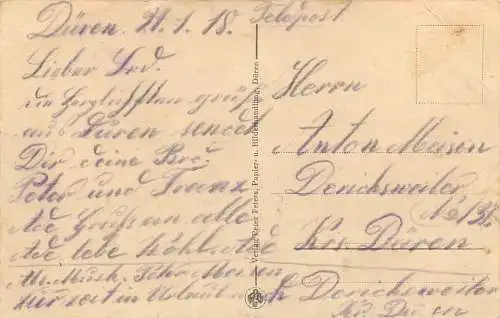 Düren. 21.1.18. Feldpost
Lieber Brd.
die herzlichsten grüße
aus Düren sendet
Dir deine Brd.
Peter und Franz
Ade Gruss an alle
Ade lebe wohl. Ade
zur zeit in Urlaub
Verlag Peter Peters, Papier- u. Bilderhandlung, Düren
Herrn
Anton Meisen
Derichsweiler
No 131.
Krs. Düren
Derichsweiler
Krs. Düren